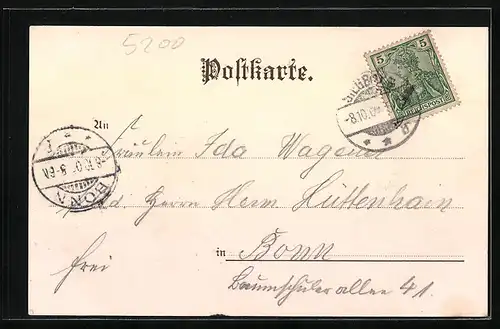 5200
Postkarte.
5 5
REICHSPOST
-8.10.0
An
Fräulein Ida Wagener
Herrn Herm Hüttenhain
in Bonn
frei
Baumschuler allee 41.
BONN
8.10.0 8-9